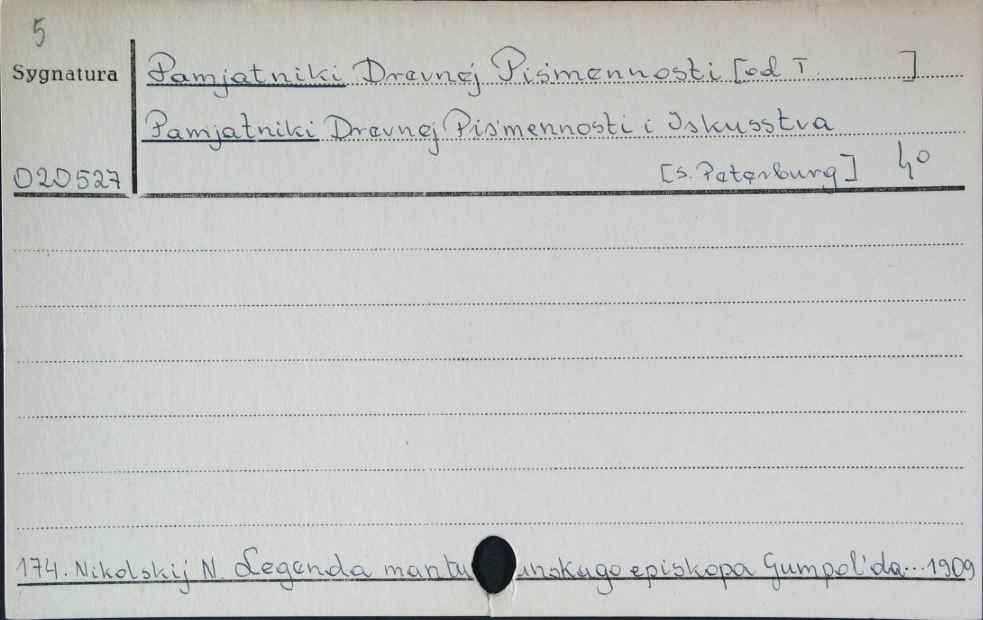 5
Sygnatura
Pamjatniki Drevnej Piśmennosti [od T. ]
Pamjatniki Drevnej Piśmennosti i Iskusstva
020527
[S. Peterburg] 4°
174. Nikolskij N. Legenda mantu inskago episkopa Gumpol'da... 1909